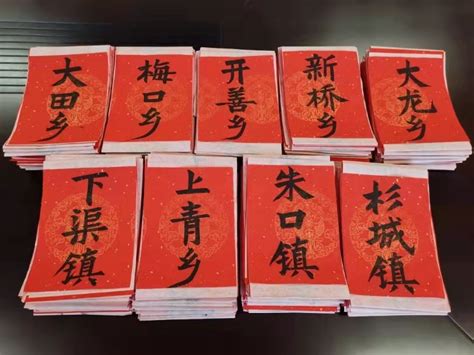 大田乡
梅口乡
开善乡
新桥乡
大龙乡
下渠镇
上青乡
朱口镇
杉城镇